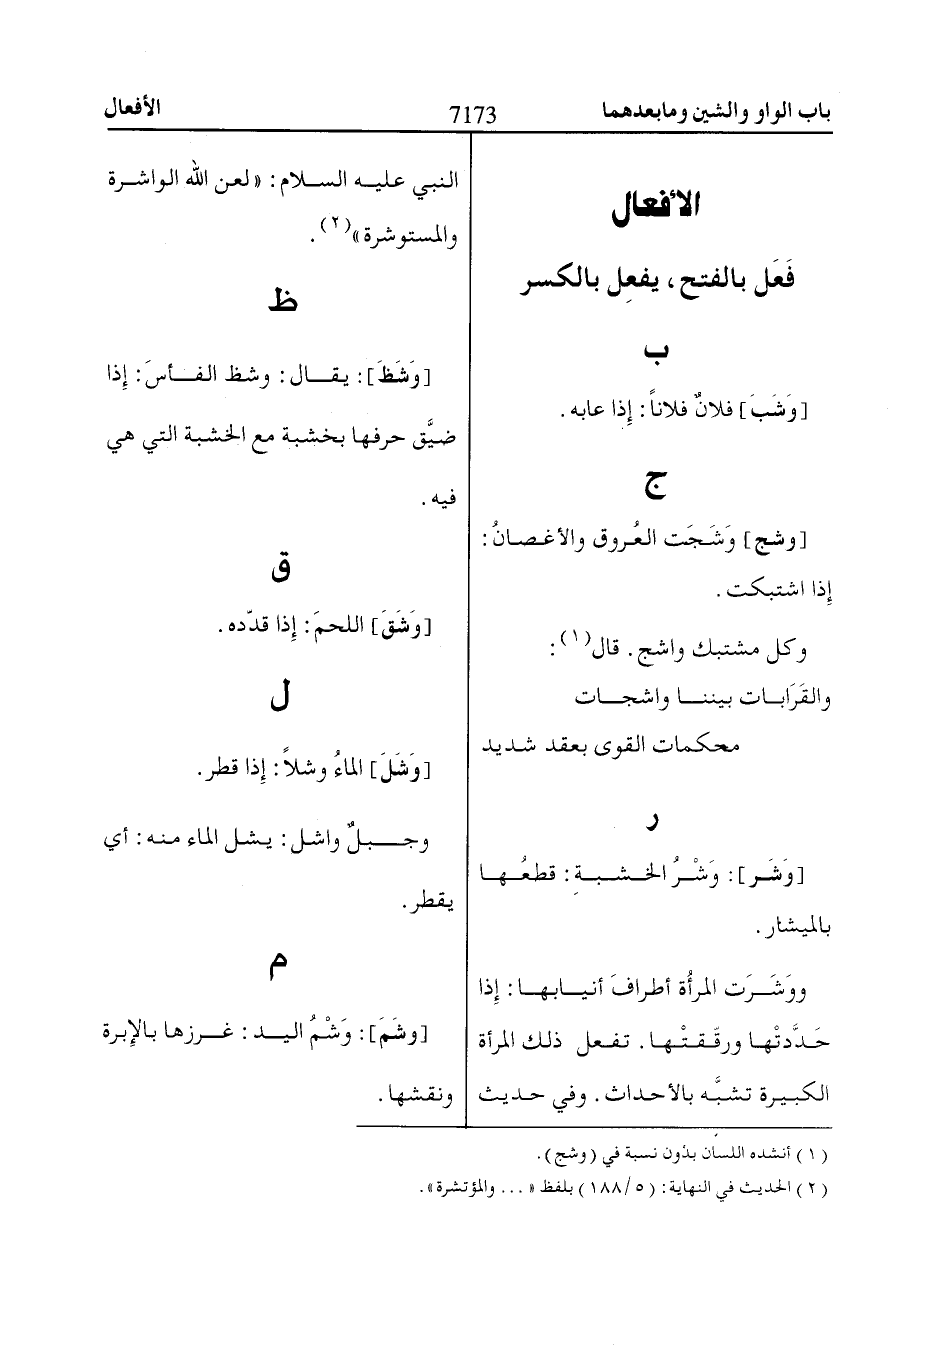 باب الواو والشين ومابعدهما
7173
الأفعال
الأفعال
فَعَل بالفتح، يفعِل بالكسر
ب
[وَشَبَ] فلانٌ فلاناً: إذا عابه.
ج
[وشج] وَشَجَت العُروق والأغصانُ:
إذا اشتبكت.
وكل مشتبك واشج. قال(١):
والقَرَابات بيننا واشجات
محكمات القوى بعقد شديد
ر
[وَشَر]: وَشْرُ الخشبةِ: قطعُها
بالميشار.
ووَشَرَت المرأة أطرافَ أنيابها: إذا
حَدَّدتْها ورقّقتْها. تفعل ذلك المرأة
الكبيرة تشبَّه بالأحداث. وفي حديث
النبي عليه السلام: «لعن الله الواشرة
والمستوشرة»(٢).
ظ
[وَشَظَ]: يقال: وشظ الفأسَ: إذا
ضيَّق حرفها بخشبة مع الخشبة التي هي
فيه.
ق
[وَشَقَ] اللحمَ: إذا قدّده.
ل
[وَشَلَ] الماءُ وشلاً: إذا قطر.
وجبلٌ واشل: يشل الماء منه: أي
يقطر.
م
[وشَمَ]: وَشْمُ اليد: غرزها بالإبرة
ونقشها.
(١) أنشده اللسان بدُون نسبة في (وشج).
(٢) الحديث في النهاية: (١٨٨/٥) بلفظ «... والمؤتشرة».